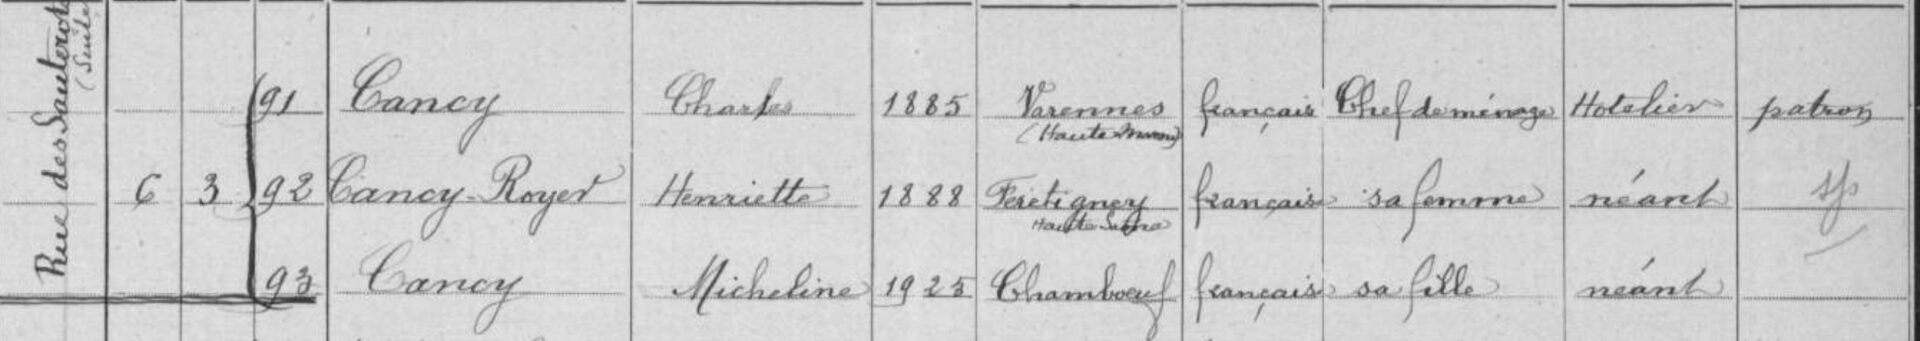 Rue des Sauterots
(Suite)
91 Cancy Charles 1885 Varennes français Chef de ménage Hotelier patron
(Haute Marne)
6 3 92 Cancy-Royer Henriette 1888 Feretigney français sa femme néant sp
Haute Saône
93 Cancy Micheline 1925 Chamboeuf français sa fille néant